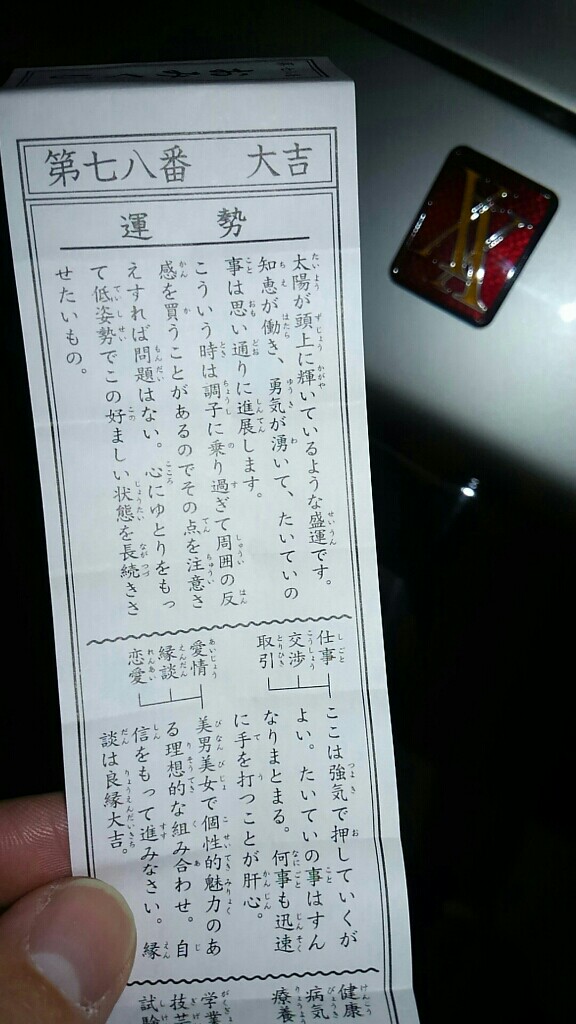 第七八番　大吉
運勢
太陽が頭上に輝いているような盛運です。
知恵が働き、勇気が湧いて、たいていの
事は思い通りに進展します。
こういう時は調子に乗り過ぎて周囲の反
感を買うことがあるのでその点を注意さ
えすれば問題はない。心にゆとりをもっ
て低姿勢でこの好ましい状態を長続きさ
せたいもの。
仕事
交渉
取引
ここは強気で押していくが
よい。たいていの事はすん
なりまとまる。何事も迅速
に手を打つことが肝心。
愛情
縁談
恋愛
美男美女で個性的魅力のあ
る理想的な組み合わせ。自
信をもって進みなさい。縁
談は良縁大吉。
健康
病気
療養
学業
技芸
試験